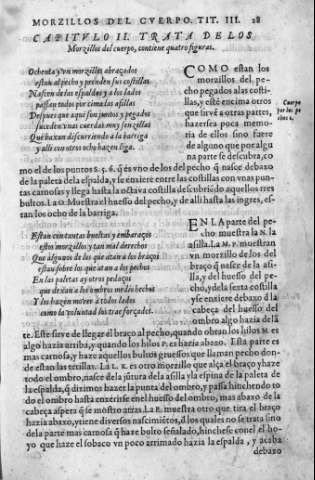 MORZILLOS DEL CVERPO. TIT. III. 28
CAPITVLO II. TRATA DE LOS
Morzillos del cuerpo, contiene quatro figuras.
Ochenta y vn morzillos abraçados
estan al pecho y prenden sus costillas
Nascen de las espaldas y a los lados
passan todos por cima las asillas
Despues que aqui son juntos y pegados
suceden unas carnidas muy senzillas
Que baxan discurriendo a la barriga
y alli con otros ocho hazen liga.
COMO estan los
morzillos del pe-
cho pegados a las costi-
llas, y esté encima otros
que sirvē a otras partes,
hazersea poca memo-
ria de ellos sino fuere
de alguno que por algu
na parte se descubra, co
Cuerpo
por los pe
chos 1.
mo el de los puntos 5. 5. 6. q̄ es vno de los del pecho q̄ nasce debaxo
de la paleta de la espalda, y se enxiere entre las costillas con vnas pun-
tas carnosas y llega hasta la octava costilla descubriēdo aquellos tres
bultos. La O. Muestra el huesso del pecho, y de alli hasta las ingres, es-
tan los ocho de la barriga.
Estan cincuenta huessos y embaraços
estos morzillos y tan mal derechos
Que algunos de los que atan a los braços
estan sobre los que atan a los pechos
En las paletas ay otros pedaços
que de atan a los ombros mecilos hechos
Y los hazen mover a todos lados
como la voluntad los trae forçados.
EN LA parte del pe-
cho muestra la N. la
asilla. La M. P. muestran
vn morzillo de los del
braço q̄ nasce de la asi-
lla, y del huesso del pe-
cho, y de la sexta costilla
y se enxiere debaxo d la
cabeça del huesso del
ombro algo hazia delā
te. Este sirve de llegar el braço al pecho, quando obran los hilos M. es
algo hazia arriba, y quando los hilos P. es hazia abaxo. Esta parte es
mas carnosa, y haze aquellos bultos gruessos que llaman pecho don-
de estan las tetillas. La L. K. es otro morzillo que alça el braço y haze
todo el ombro, nasce de la sutura de la asilla y la espina de la paleta de
la espalda, q̄ diximos hazer la punta del ombro, y passa hinchendo to
do el ombro hasta enxerirse en el huesso del ombro, mas abaxo de la
cabeça aspera q̄ se mostro atras. La R. muestra otro que tira el braço
hazia abaxo, y tiene diversos nascimiētos, d los quales no se trata sino
de la parte mas carnosa q̄ haze bulto señalado, hinchese con el el ho-
yo que haze el sobaco vn poco arrimado hazia la espalda, y acaba
debaxo